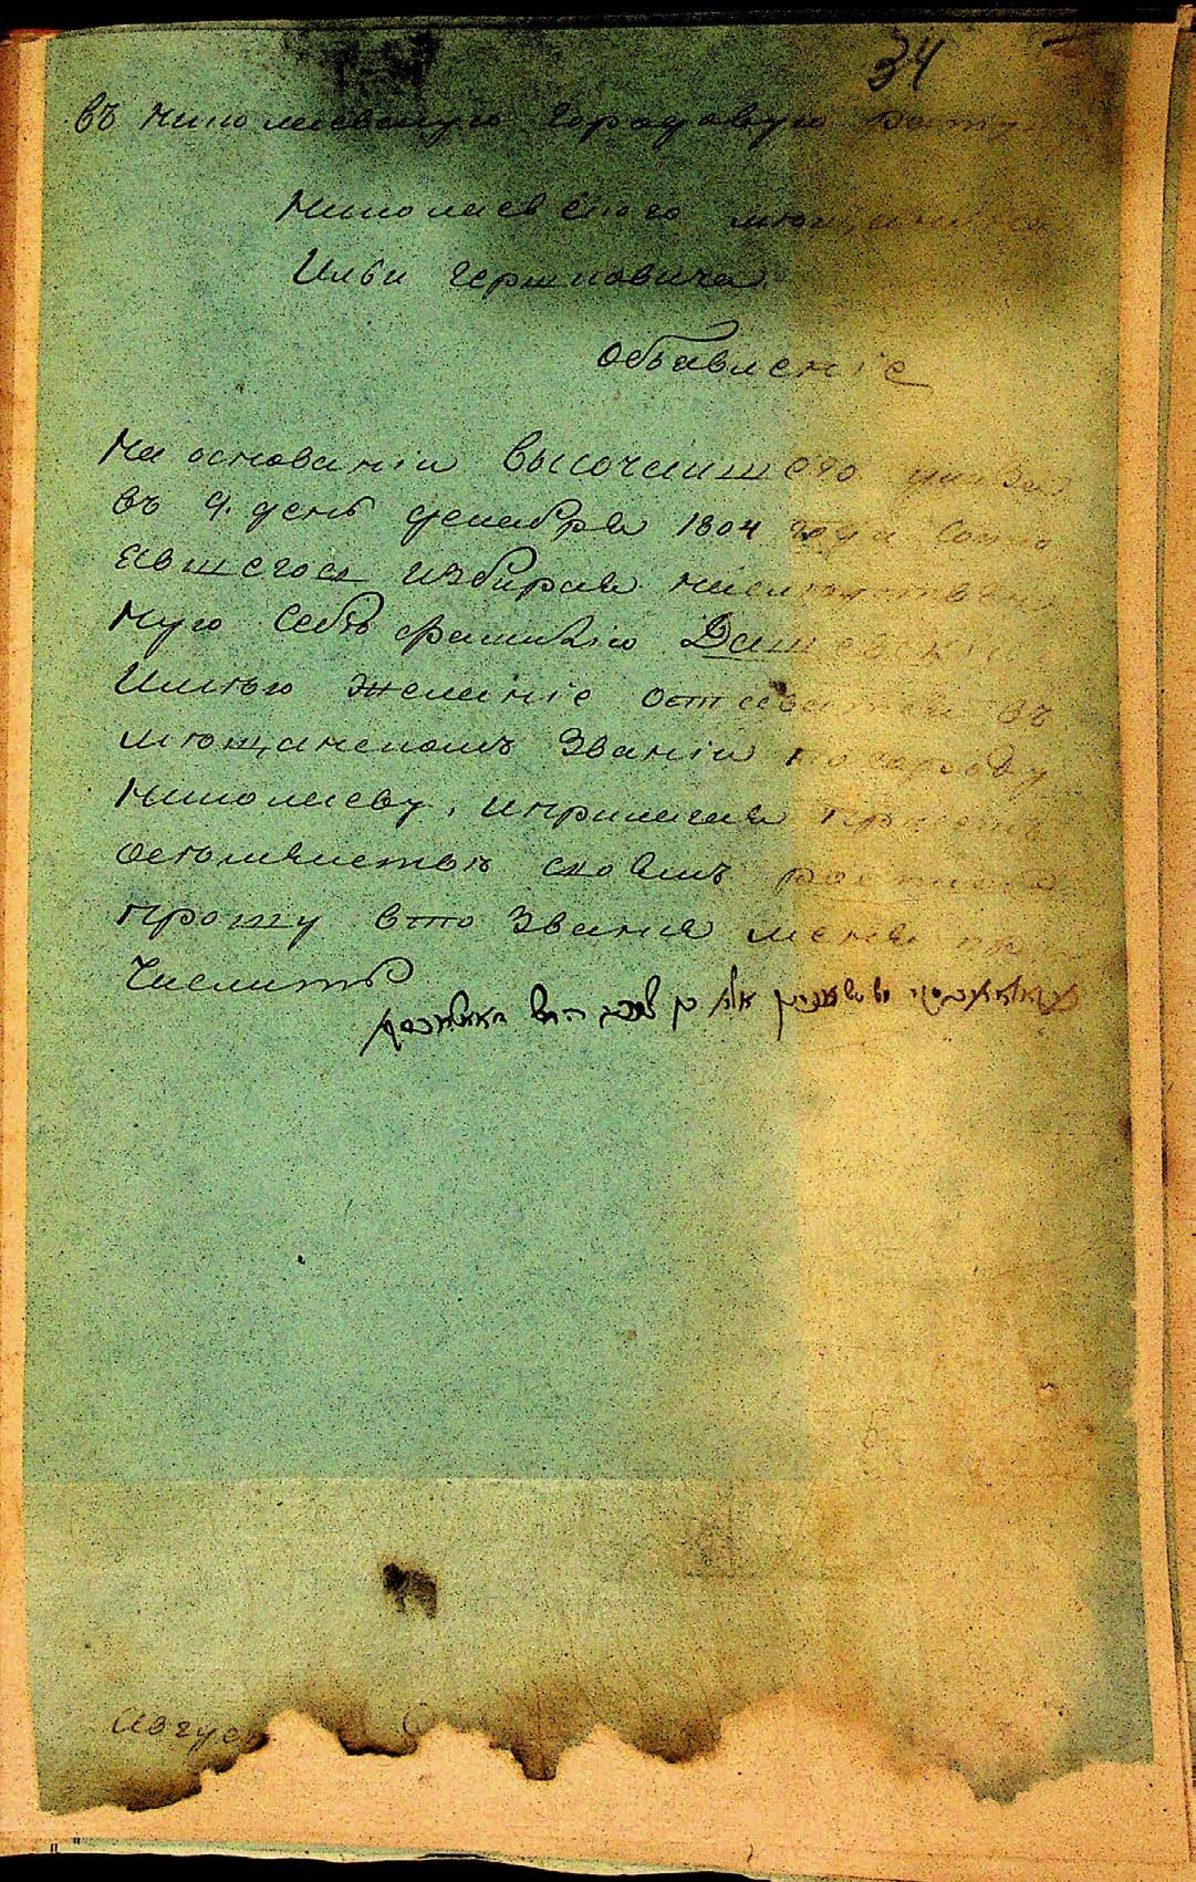 34
въ Николаевскую Городовую Рату
Николаевского мѣщанина
Ильи Гершковича
Объявленіе
На основаніи Высочаишего указа
въ 9. день декабря 1804 года состо
явшегося избирая наследствен
ную себѣ фамилію Дашевскій
Имѣю желаніе оставатся въ
мѣщанскомъ Званіи по городу
Николаеву, и прилагая при семъ
осемействѣ своемъ
прошу вто Звание меня при
числить
אלי בן
Август